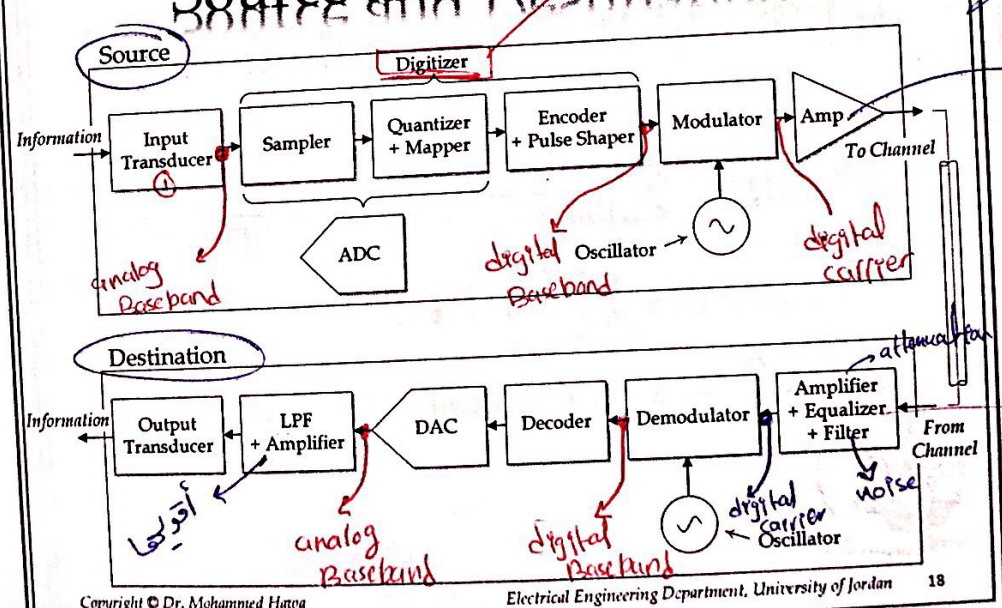 Source
Digitizer
Information
Input
Transducer
1
Sampler
Quantizer
+ Mapper
Encoder
+ Pulse Shaper
Modulator
Amp
To Channel
ADC
Oscillator
analog
Baseband
digital
Baseband
digital
carrier
Destination
attenuation
Information
Output
Transducer
LPF
+ Amplifier
DAC
Decoder
Demodulator
Amplifier
+ Equalizer
+ Filter
From
Channel
noise
analog
Baseband
digital
Baseband
digital
carrier
Oscillator
Copyright © Dr. Mohammed Hawa
Electrical Engineering Department, University of Jordan
18